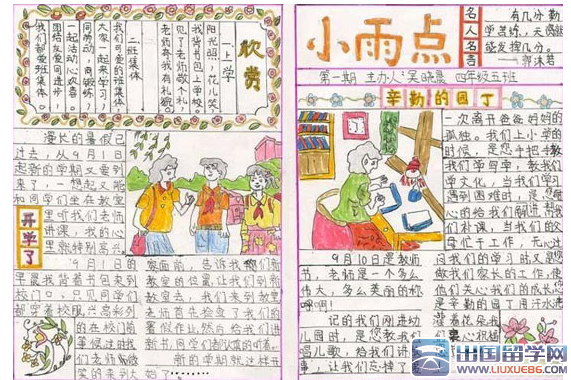 欣赏
上学
阳光照，花儿笑，
我背书包上学校。
见了老师敬个礼，
老师夸我有礼貌。
二班集体
我们可爱的班集体
大家一起来学习，
同劳动，同锻炼，
一起活动心欢喜。
团结友爱同进步，
我们都爱班集体。
漫长的暑假已
过去，从9月1日
起新的学期又要到
来了，一想起又能
和同学们坐在教室
里听我们老师
讲课，我的心
里就特别高兴。
开学了
9月1日的
早晨我背着书包来到
校门口，只见同学们
都穿着校服，兴高彩列
的在校门前
等候
们老师
笑的来到
告诉我们新
教室的位置，让我们到新
教室去，我们来到教室
老师首先检查了我们的
暑假作业，然后给我们
新书，同学们都
新的学期就这样开
始了
小雨点
名人名言
有几分勤
学苦练，天资就
能发挥几分。
——郭沫若
第一期 主办人：吴晓晨 四年级五班
辛勤的园丁
一次离开爸爸妈妈的
孤独。我们上小学的
时候，是您手把手教
我们学写字，教我们
学文化，当我们学习
遇到困难时，是您
心的给我们解
们朴课，当我们的父
母忙于工作，无心过
问我们的学习时又是您
做我们家长的工作，使
他们关心我们的成长，您
是辛勤的园丁用汗水
灌着花朵
心祝福
9月10日是教师
节，老师是一个多么
伟大，多么美丽的称
呼啊！
记的我们刚进幼
儿园时，是您教我们
唱儿歌，给我们讲
事，让我们忘掉了
出国留学网
www.liuxue86.com